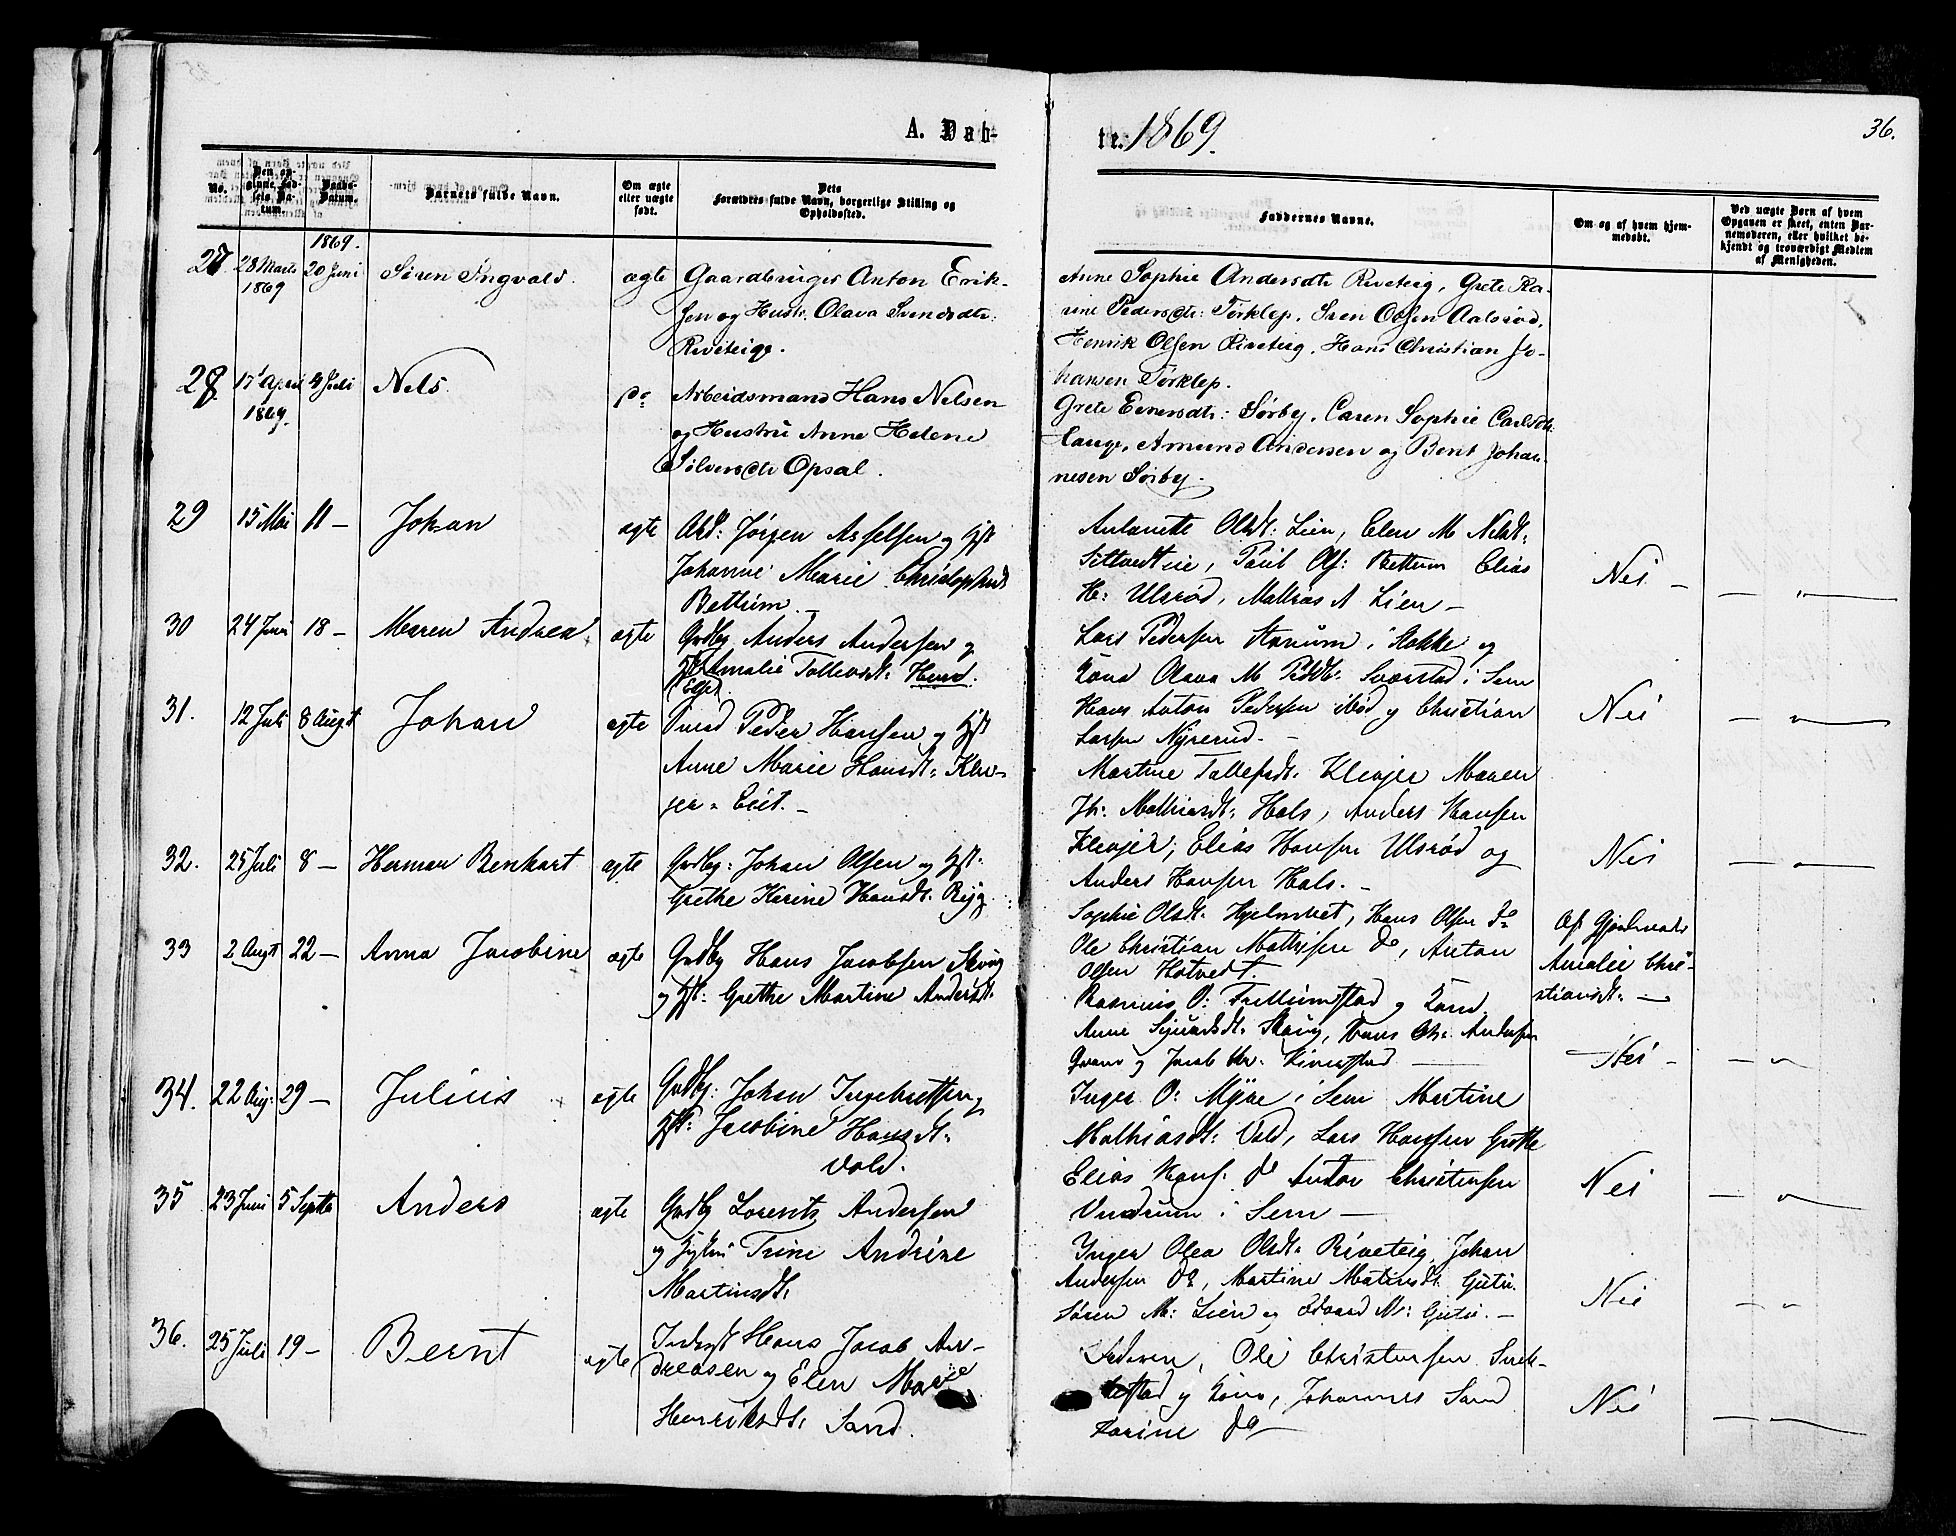 A. Dab-
te. 1869.
36.
No.
Den opgivne Fødsels Datum.
Daabs-Datum.
Barnets fulde Navn.
Om ægte eller uægte født.
Dets Forældres fulde Navn, borgerlige Stilling og Opholdssted.
Faddernes Navne.
Om og af hvem hjemmedøbt.
Ved uægte Børn af hvem Opgaven er skeet, enten Barnemoderen, eller hvilket bekjendt og troværdigt Medlem af Menigheden.
27. 28 Marts 1869 1869. 20 Juni Søren Ingvald. ægte
Gaardbruger Anton Erik-
sen og Hustr. Olava Svendsdtr.
Riveteig.
Anne Sophie Andersdtr Riveteig, Grete Ka-
rine Pedersdtr: Tørklep, Sven Olsen Aalsrød,
Henrik Olsen Riveteig, Hans Christian Jo-
hansen Tørklep.
28. 17 April 1869. 4 Juli Nels. do
Arbeidsmand Hans Nelsen
og Hustru Anne Helene
Sølversdtr Opsal.
Grete Evensdtr: Sørby, Caren Sophie Carlsdtr
Hauge, Amund Andersen og Bent Johan-
nesen Sørby.
29 15 Mai 11 – Johan ægte
Arb: Jørgen Axelsen og Hst
Johanne Marie Christophsdt
Bettum. –
Antonette Olsdt: Lien, Elen M Nelsdt:
Paul Ols: Bettum Elias
H: Ulsrød, Mathias A Lien –
Nei – – " –
30 24 Juni 18 – Maren Andrea ægte
Grdbg Anders Andersen og
Hst Amalie Tollevsdt: Hund.
Lars Pedersen i Stokke og
Kona Olava M Pedsdt: Sværstad i Sem
Hans Anton Pedersen og Christian
Larsen Nyrerød. –
Nei – " –
31. 12 Juli 8 Augst Johan ægte
Peder Hansen og Hst
Anne Marie Hansdt: Klev-
jer – Eiet. –
Martine Tollefsdt. Klevjer Maren
Mathiasdt: Hals, Anders Hansen
Klevjer, Elias Hansen Ulsrød og
Anders Hansen Hals. –
Nei – " –
32. 25 Juli 8 – Herman Benhart ægte
Grdbg: Johan Olsen og Hst.
Grethe Karine Hansdt.
Sophie Olsdt. Hjelmtvet, Hans Olsen do
Ole Christian Mathisen do, Anton
Olsen Hotvedt.
Af Gjordmoder
Amalie Chri-
stiansdt. –
33 2 Augst 22 – Anna Jacobine ægte
Grdbg Hans Jacobsen Skoug
og Hst: Grethe Martine Andersdt.
Rasmus O: og Kone
Anne Sjuersdt. Skoug, Hans Chr. Andersen
og Jacob
– Nei – – " –
34. 22 Aug. 29 – Julius ægte
Grdbg: Johan Ingebretsen og
Hst: Jacobine Hansdt.
Vold.
Inger O: Myre i Sem Martine
Mathiasdt: Vold, Lars Hansen
Elias Hans: do Anton Christensen
Undrum i Sem –
Nei – " –
35 23 Juni 5 Septbr Anders ægte
Grdbg Lorents Andersen
og Hustru Trine Andrine
Martinsdt.
Inger Olea Olsdt: Riveteig, Johan
Andersen do, Martine Matinsdt. Gutu.
Søren M: Lien og Edvard M: Gutu. –
Nei – " –
36. 25 Juli 19 – Bernt ægte
Inderst Hans Jacob An-
dreasen og Elen Marie
Henriksdt. Sand.
Faderen, Ole Christensen
og Kone, Johannes Sand
Karine do
Nei – –